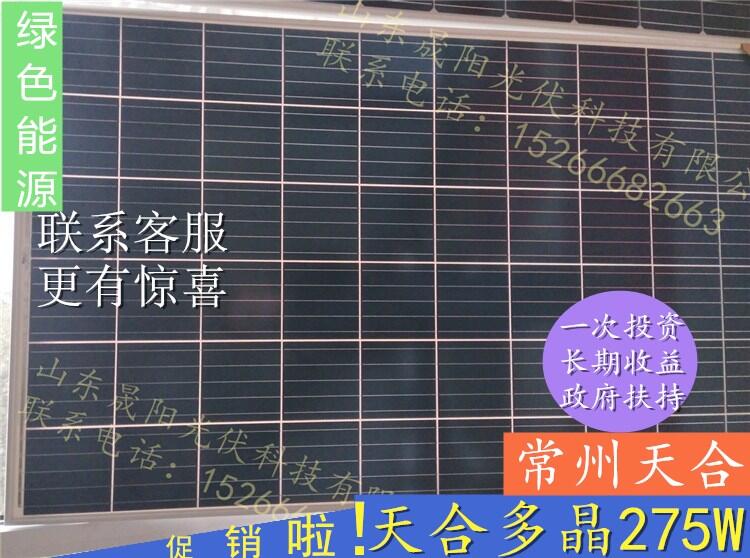 绿色能源
山东晟阳光伏科技有限公
联系电话：15266682663
联系客服
更有惊喜
一次投资
长期收益
政府扶持
山东晟阳光伏科技有限
联系电话：15266
常州天合
促销啦！天合多晶275W